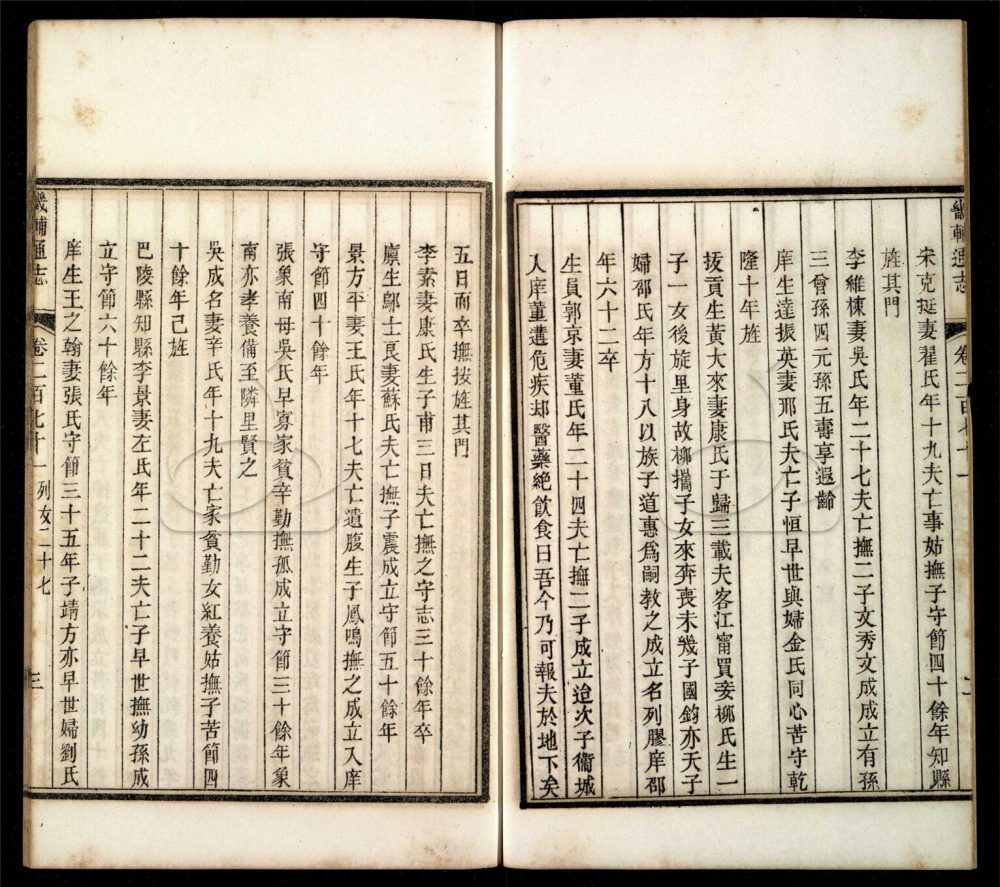 宋克挺妻翟氏年十九夫亡事姑撫子守節四十餘年知縣
旌其門
李維棟妻吳氏年二十七夫亡撫二子文秀文成成立有孫
三曾孫四元孫五壽享遐齡
庠生達振英妻邢氏夫亡子恒早世與婦金氏同心苦守乾
隆十年旌
拔貢生黃大來妻康氏于歸三載夫客江甯買妾柳氏生一
子一女後旋里身故柳攜子女來奔喪未幾子國鈞亦夭子
婦邵氏年方十八以族子道惠爲嗣教之成立名列膠庠邵
年六十二卒
生員郭京妻董氏年二十四夫亡撫二子成立迨次子衞城
入庠董遘危疾却醫藥絶飲食曰吾今乃可報夫於地下矣
畿輔通志
卷二百七十一
五日而卒撫按旌其門
李素妻康氏生子甫三日夫亡撫之守志三十餘年卒
廩生鄔士良妻蘇氏夫亡撫子震成立守節五十餘年
景方平妻王氏年十七夫亡遺腹生子鳳鳴撫之成立入庠
守節四十餘年
張象南母吳氏早寡家貧辛勤撫孤成立守節三十餘年象
南亦孝養備至隣里賢之
吳成名妻辛氏年十九夫亡家貧勤女紅養姑撫子苦節四
十餘年己旌
巴陵縣知縣李景妻左氏年二十二夫亡子早世撫幼孫成
立守節六十餘年
庠生王之翰妻張氏守節三十五年子靖方亦早世婦劉氏
畿輔通志
卷二百七十一
列女二十七
三